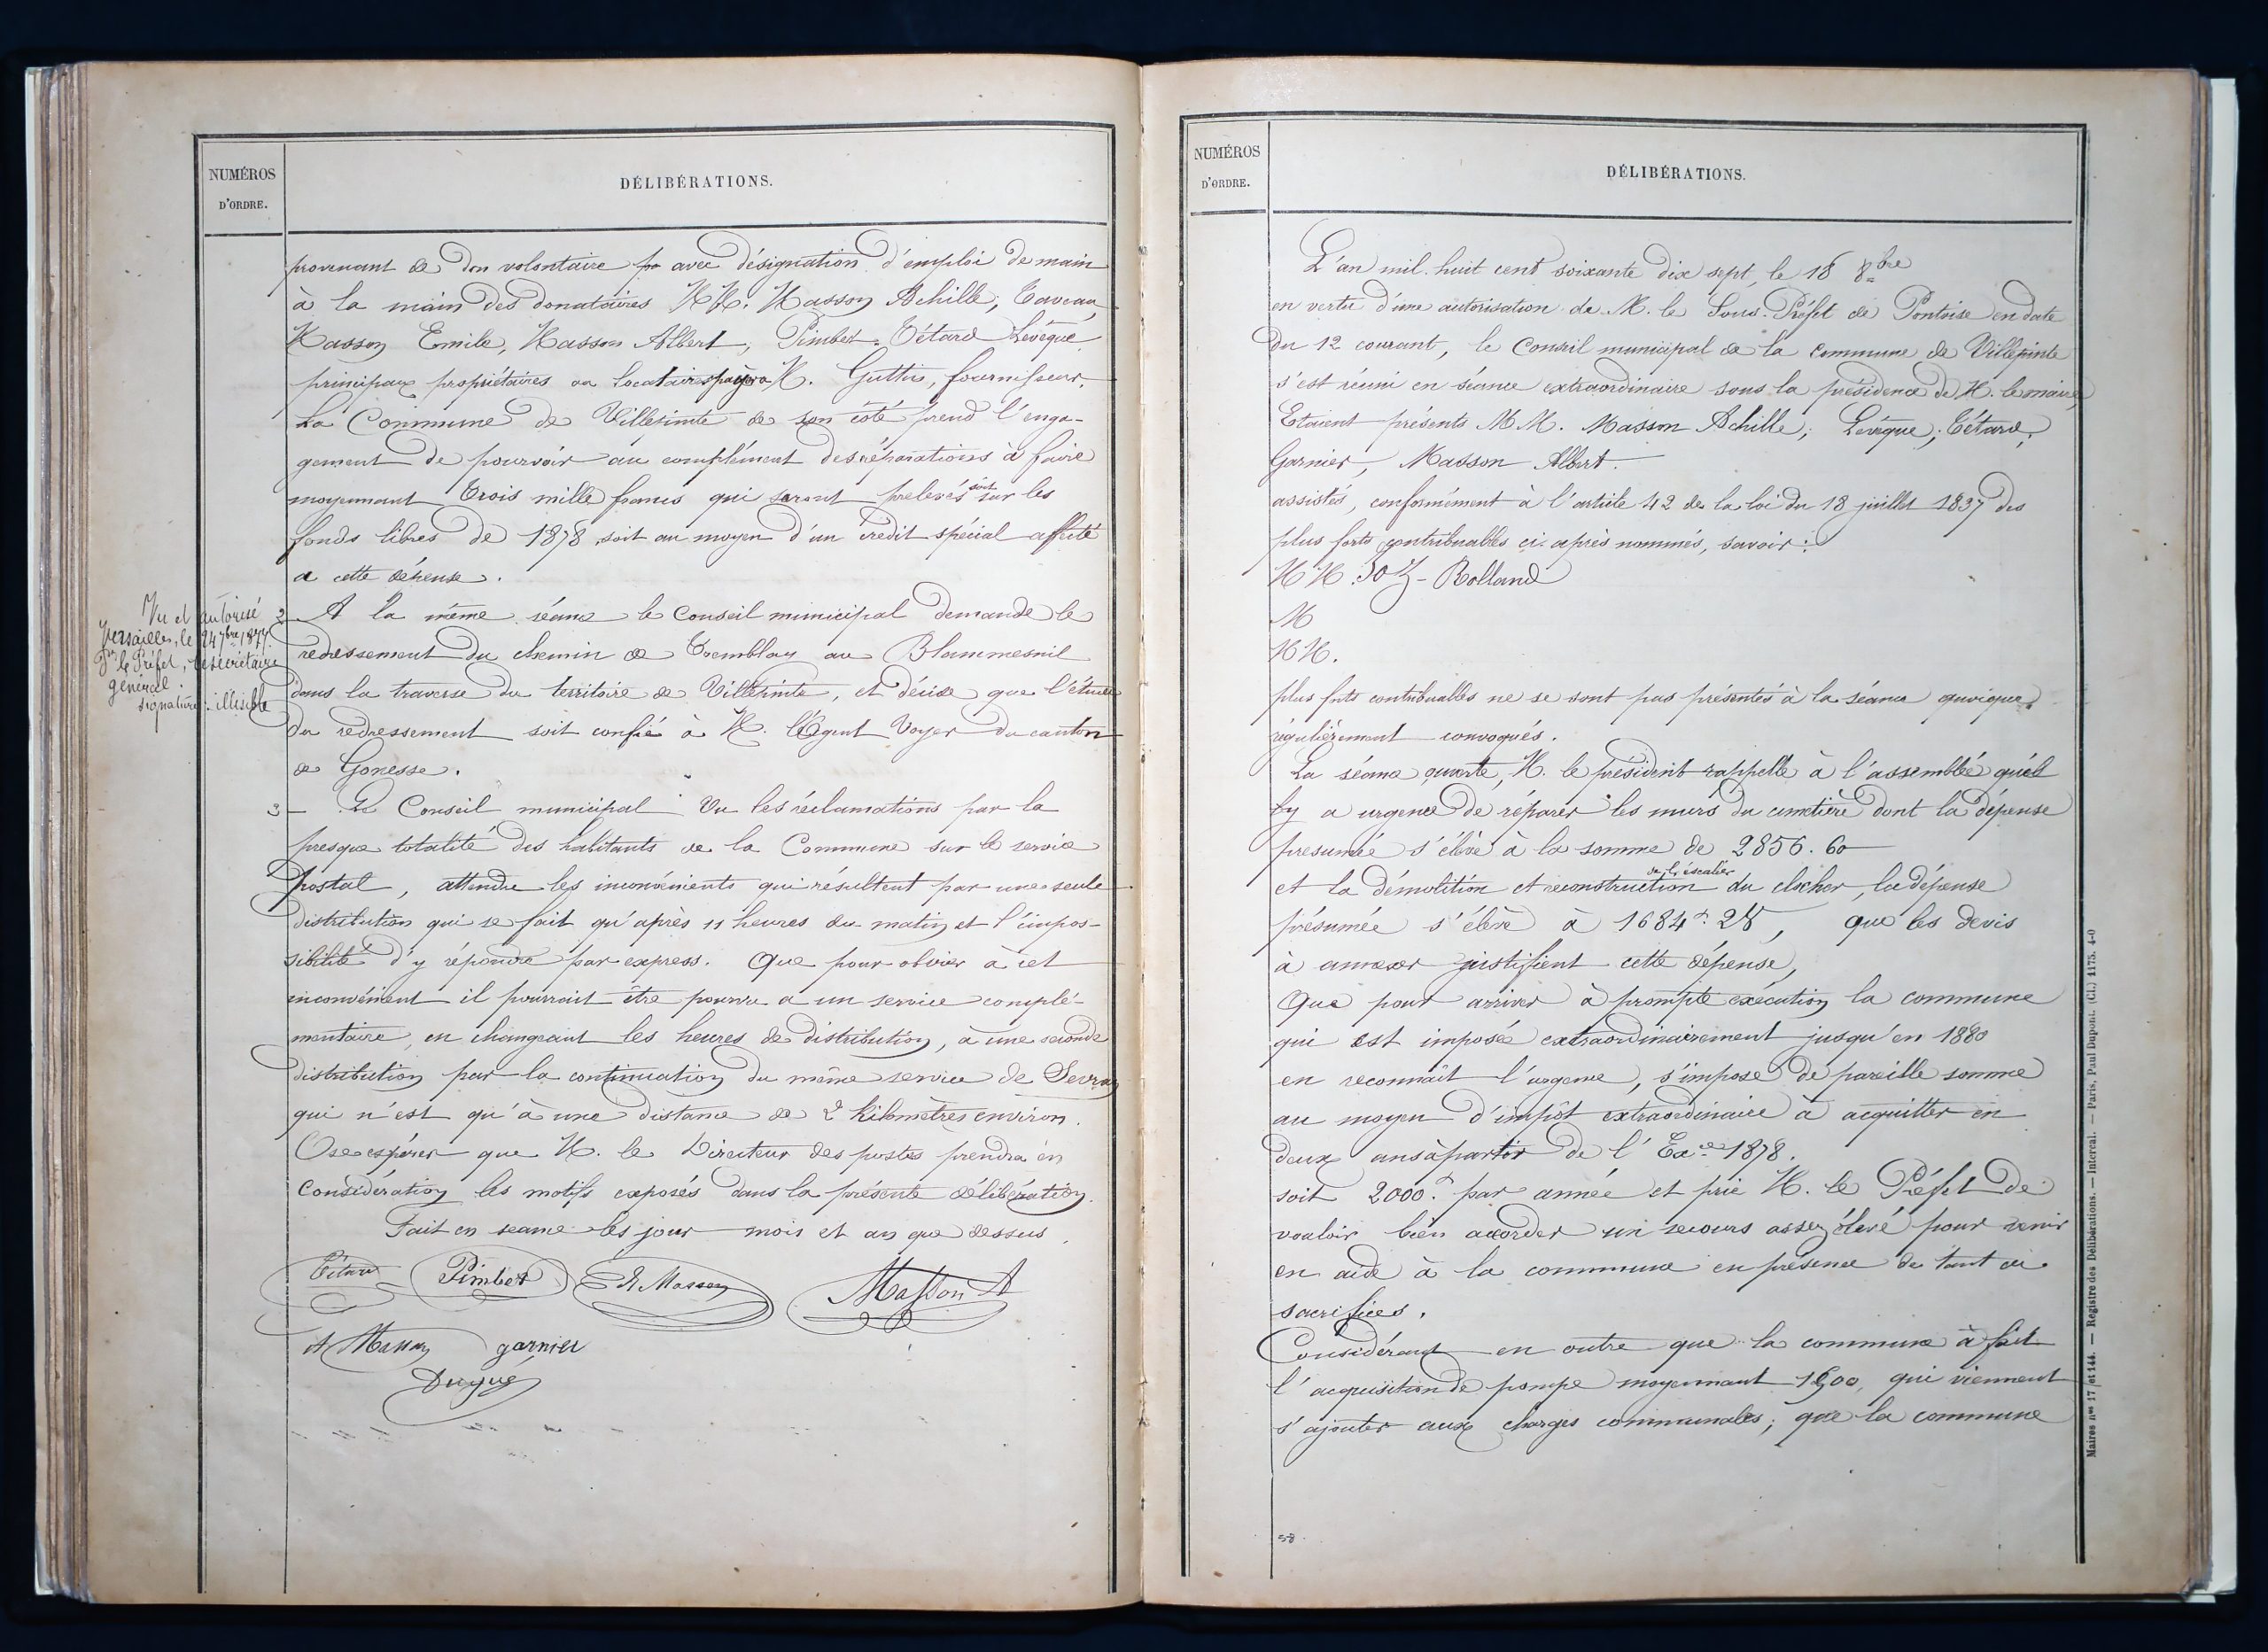 NUMÉROS
D'ORDRE.
DÉLIBÉRATIONS.
provenant de don volontaire avec désignation d'emploi de main
à la main des donataires MM. Masson Achille, Taveau,
Masson Emile, Masson Albert, Pimbet, Tétard Levêque
principaux propriétaires ou Locataires M. Guttin, fournisseur.
La Commune de Villepinte de son côté prend l'enga-
gement de pourvoir au complément des réparations à faire
moyennant Trois mille francs qui seront prelevés soit sur les
fonds libres de 1878, soit au moyen d'un crédit spécial affecté
a cette dépense.
Vu et autorisé
Versailles, le 24 7bre 1877.
Pr le Préfet, le secrétaire
général.
signature : illisible
2 A la même séance le Conseil municipal demande le
redressement du chemin de Tremblay au Blammesnil
dans la traverse du territoire de Villepinte, et décide que l'étude
du redressement soit confié à M. l'Agent Voyer du canton
de Gonesse.
3 — Le Conseil municipal Vu les réclamations par la
presque totalité des habitants de la Commune sur le service
postal, attendu les inconvénients qui résultent par une seule
distribution qui se fait qu'après 11 heures du matin et l'impos-
sibilité d'y répondre par express. Que pour obvier à cet
inconvénient il pourrait être pourvu a un service complé-
mentaire, en changeant les heures de distribution, à une seconde
distribution par la continuation du même service de Sevran
qui n'est qu'à une distance de 2 Kilomètres environ.
Ose espérer que M. le Directeur des postes prendra en
Considération les motifs exposés dans la présente délibération.
Fait en seance les jour mois et an que dessus.
Tétard Pimbet E Masson Masson A
A Masson garnier
Dugué
NUMÉROS
D'ORDRE.
DÉLIBÉRATIONS.
L'an mil huit cent soixante dix sept, le 18 8bre
en vertu d'une autorisation de M. le Sous-Préfet de Pontoise en date
du 12 courant, le Conseil municipal de la commune de Villepinte
s'est réuni en séance extraordinaire sous la présidence de M. le maire,
Etaient présents MM. Masson Achille; Lévêque; Tétard;
Garnier, Masson Albert.
assistés, conformément à l'article 42 de la loi du 18 juillet 1837 des
plus forts contribuables ci-après nommés, savoir :
MM. - Rolland
M
MM.
plus forts contribuables ne se sont pas présentés à la séance quoique
régulièrement convoqués.
La séance ouverte, M. le président rappelle à l'assemblée qu'il
y a urgence de réparer les murs du cimetière dont la dépense
presumée s'élève à la somme de 2856. 60
et la démolition et reconstruction de l'éscalier du clocher, la dépense
présumée s'élève à 1684f. 28, que les devis
à annexer justifient cette dépense,
Que pour arriver à prompte exécution la commune
qui est imposée extraordinairement jusqu'en 1880
en reconnaît l'urgence, s'impose de pareille somme
au moyen d'impôt extraordinaire à acquitter en
deux ans à partir de l'Exce 1878.
soit 2000f. par année et prie M. le Préfet de
vouloir bien accorder un secours assez élevé pour venir
en aide à la commune en présence de tant de
sacrifices.
Considérant en outre que la commune à fait
l'acquisition de pompe moyennant 1500, qui viennent
s'ajouter aux charges communales; que la commune
58
Maires nos 17 et 144. — Registre des Délibérations. — Intercal. — Paris, Paul Dupont. (Cl.) 1175. 4-0